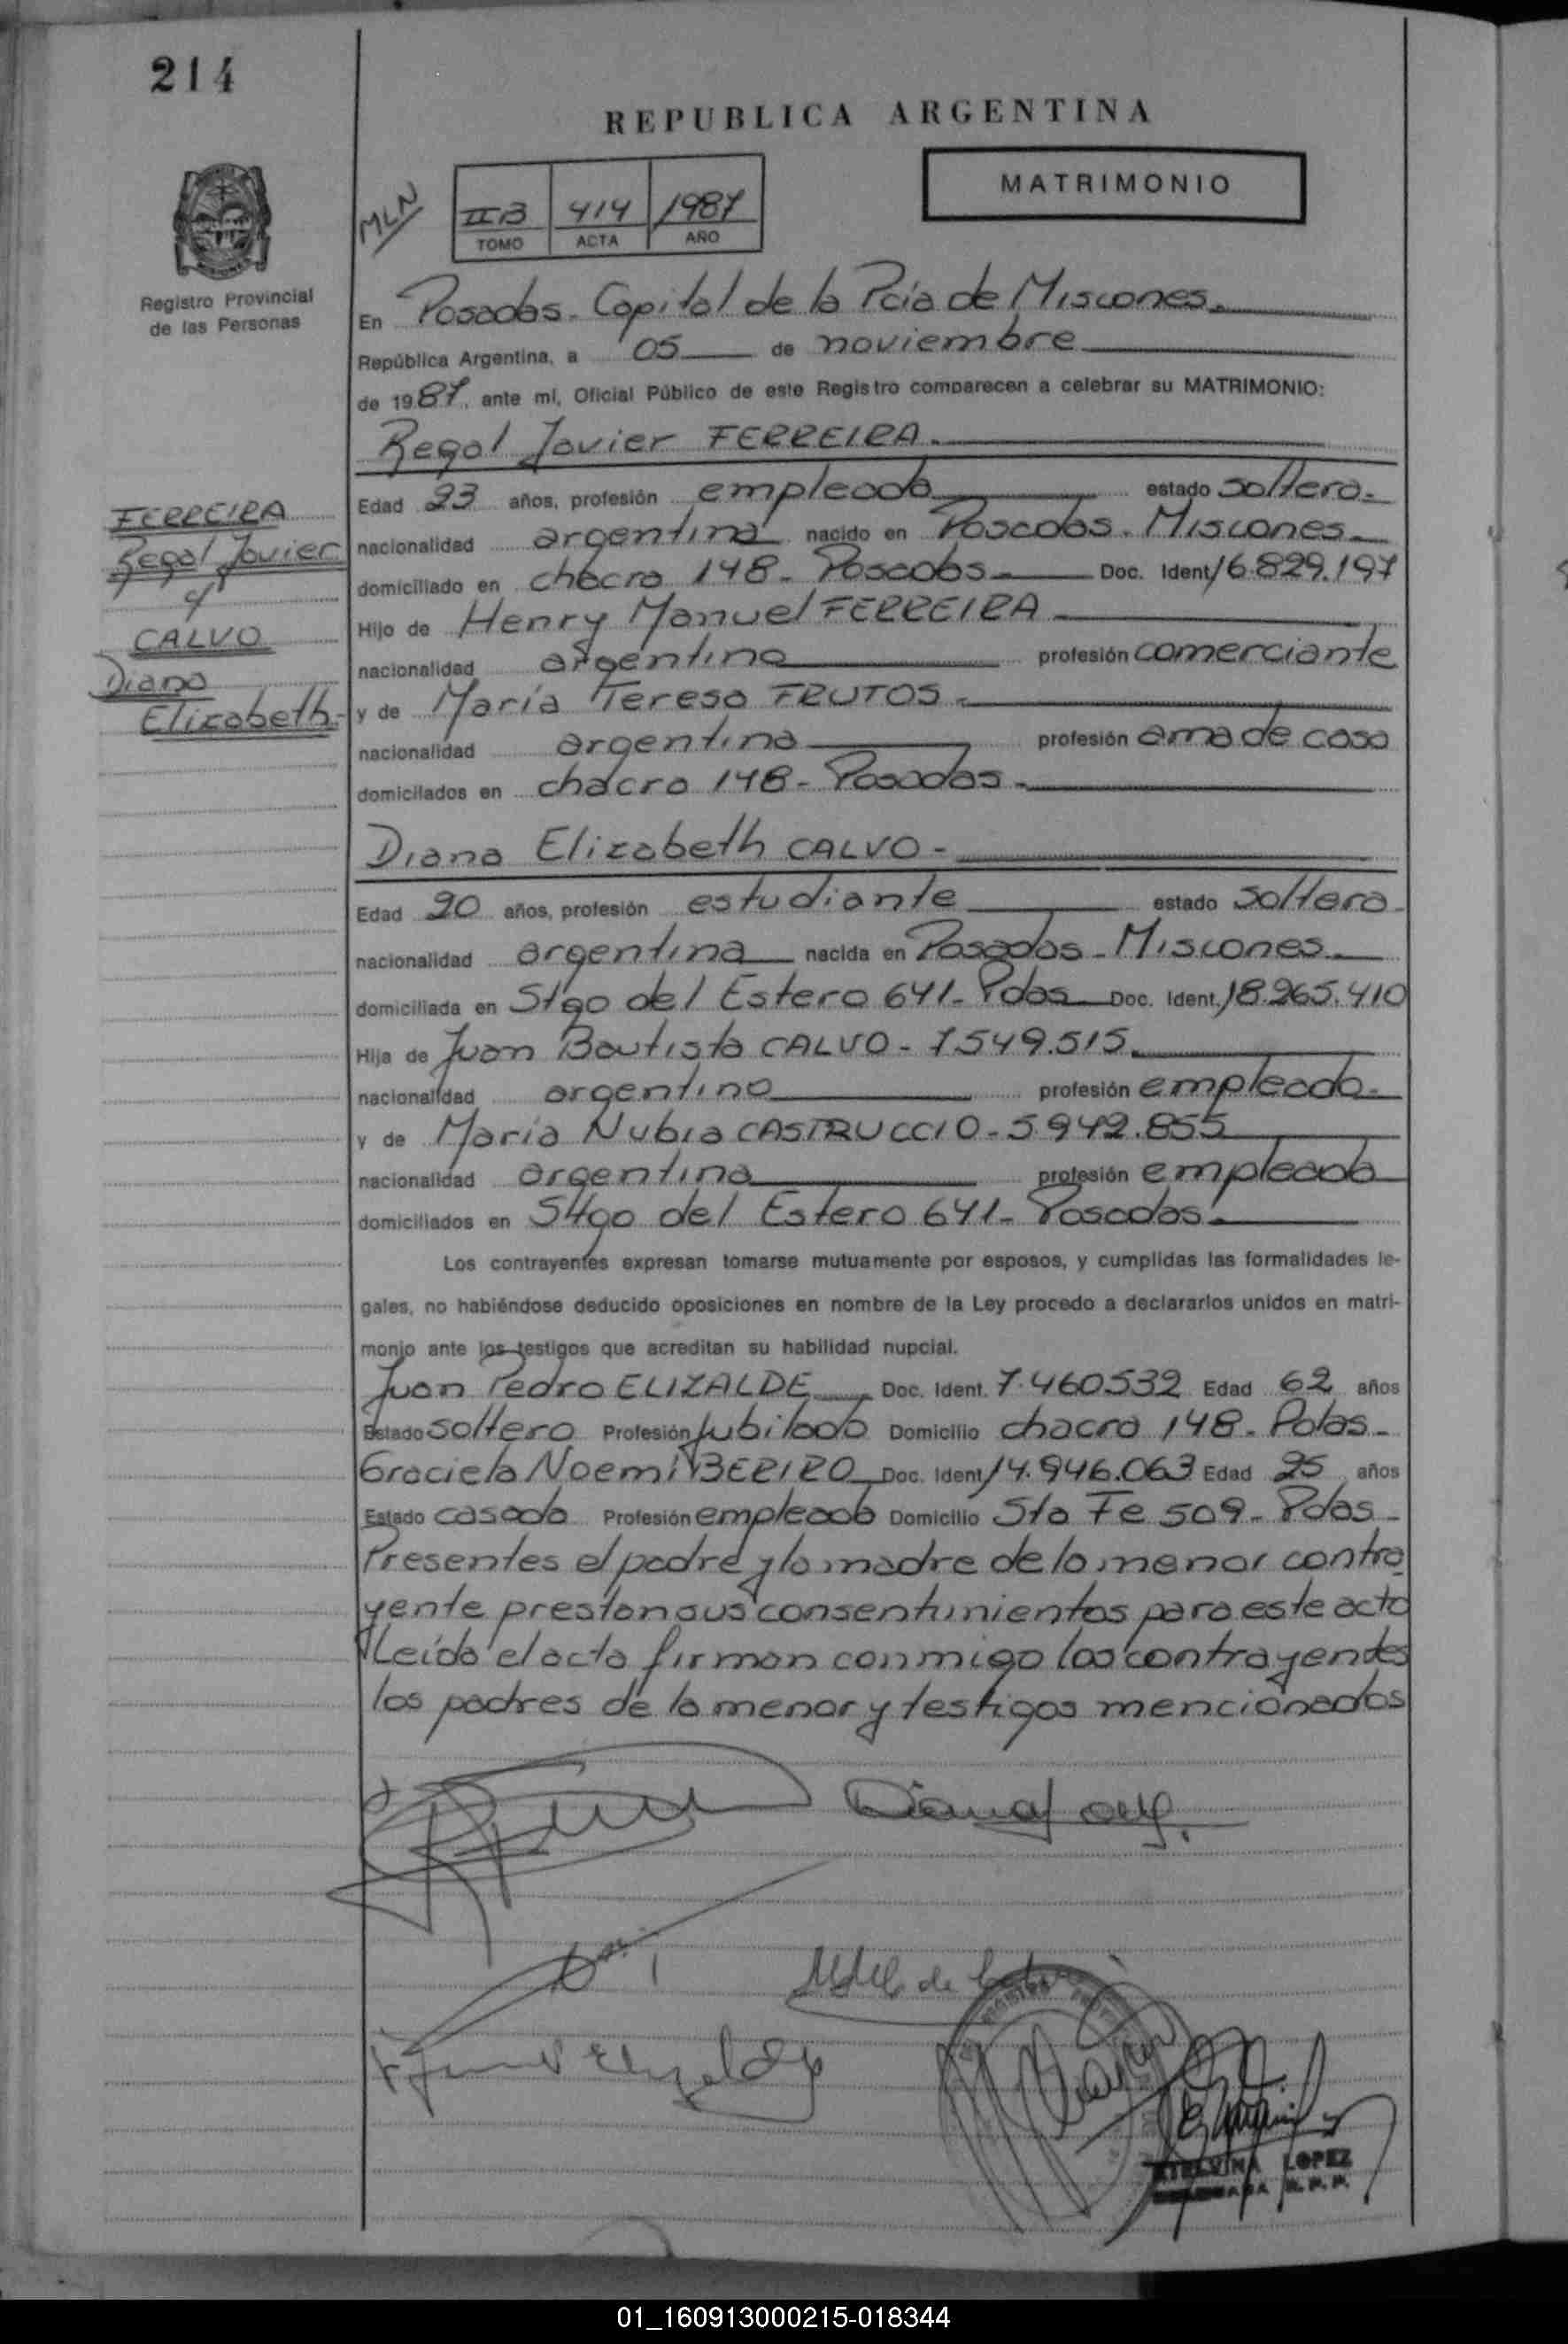 214
REPUBLICA ARGENTINA
MATRIMONIO
MLN
II B 414 1987
TOMO ACTA AÑO
Registro Provincial
de las Personas
En Posadas - Capital de la Pcia de Misiones.
República Argentina, a 05 de noviembre
de 1987, ante mí, Oficial Público de este Registro comparecen a celebrar su MATRIMONIO:
Regal Javier FERREIRA.
FERREIRA
Regal Javier
y
CALVO
Diana
Elizabeth.-
Edad 23 años, profesión empleado estado soltero.-
nacionalidad argentina nacido en Posadas - Misiones.
domiciliado en chacra 148 - Posadas - Doc. Ident. 16.829.197
Hijo de Henry Manuel FERREIRA
nacionalidad argentino profesión comerciante
y de María Teresa FRUTOS.
nacionalidad argentina profesión ama de casa
domicilados en chacra 148 - Posadas.
Diana Elizabeth CALVO -
Edad 20 años, profesión estudiante estado soltera.
nacionalidad argentina nacida en Posadas - Misiones.
domiciliada en Stgo del Estero 641 - Pdas Doc. Ident. 18.265.410
Hija de Juan Bautista CALVO - 7.549.515.
nacionalidad argentino profesión empleado.
y de María Nubia CASTRUCCIO - 5.942.855
nacionalidad argentina profesión empleada
domiciliados en Stgo del Estero 641 - Posadas.
Los contrayentes expresan tomarse mutuamente por esposos, y cumplidas las formalidades le-
gales, no habiéndose deducido oposiciones en nombre de la Ley procedo a declararlos unidos en matri-
monio ante los testigos que acreditan su habilidad nupcial.
Juan Pedro ELIZALDE Doc. Ident. 7.460.532 Edad 62 años
Estado soltero Profesión Jubilado Domicilio chacra 148 - Pdas -
Graciela Noemí BERIRO Doc. Ident. 14.946.063 Edad 25 años
Estado casada Profesión empleada Domicilio Sta Fe 509 - Pdas -
Presentes el padre y la madre de la menor contra-
yente prestan sus consentimientos para este acto
Leída el acta firman conmigo los contrayentes
los padres de la menor y testigos mencionados
LOPEZ
01_160913000215-018344